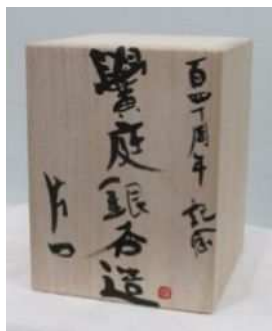 百四十周年 記念
黌庭銀杏造
片口